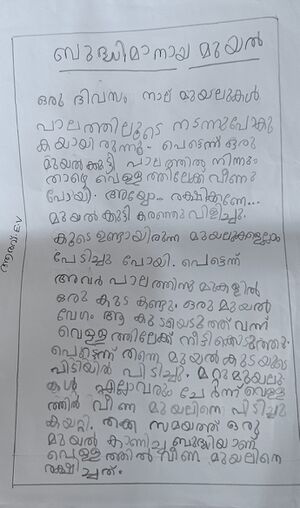 ബുദ്ധിമാനായ മുയൽ
ഒരു ദിവസം നാല് മുയലുകൾ
പാലത്തിലൂടെ നടന്നുപോകു
കയായിരുന്നു. പെട്ടെന്ന് ഒരു
മുയൽക്കുട്ടി പാലത്തിൽ നിന്നും
താഴെ വെള്ളത്തിലേക്ക് വീണു
പോയി. അയ്യോ രക്ഷിക്കണേ...
മുയൽകുട്ടി കരഞ്ഞു വിളിച്ചു.
കൂടെ ഉണ്ടായിരുന്ന മുയലുകളെല്ലാം
പേടിച്ചു പോയി. പെട്ടെന്ന്
അവർ പാലത്തിന്റെ മുകളിൽ
ഒരു കുട കണ്ടു. ഒരു മുയൽ
വേഗം ആ കുടയെടുത്ത് വന്ന്
വെള്ളത്തിലേക്ക് നീട്ടികൊടുത്തു.
പെട്ടെന്ന് തന്നെ മുയൽ കുടയുടെ
പിടിയിൽ പിടിച്ചു. മറ്റു മുയലു
കൾ എല്ലാവരും ചേർന്ന് വെള്ള
ത്തിൽ വീണ മുയലിനെ പിടിച്ചു
കയറ്റി. തക്ക സമയത്ത് ഒരു
മുയൽ കാണിച്ച ബുദ്ധിയാണ്
വെള്ളത്തിൽ വീണ മുയലിനെ
രക്ഷിച്ചത്.